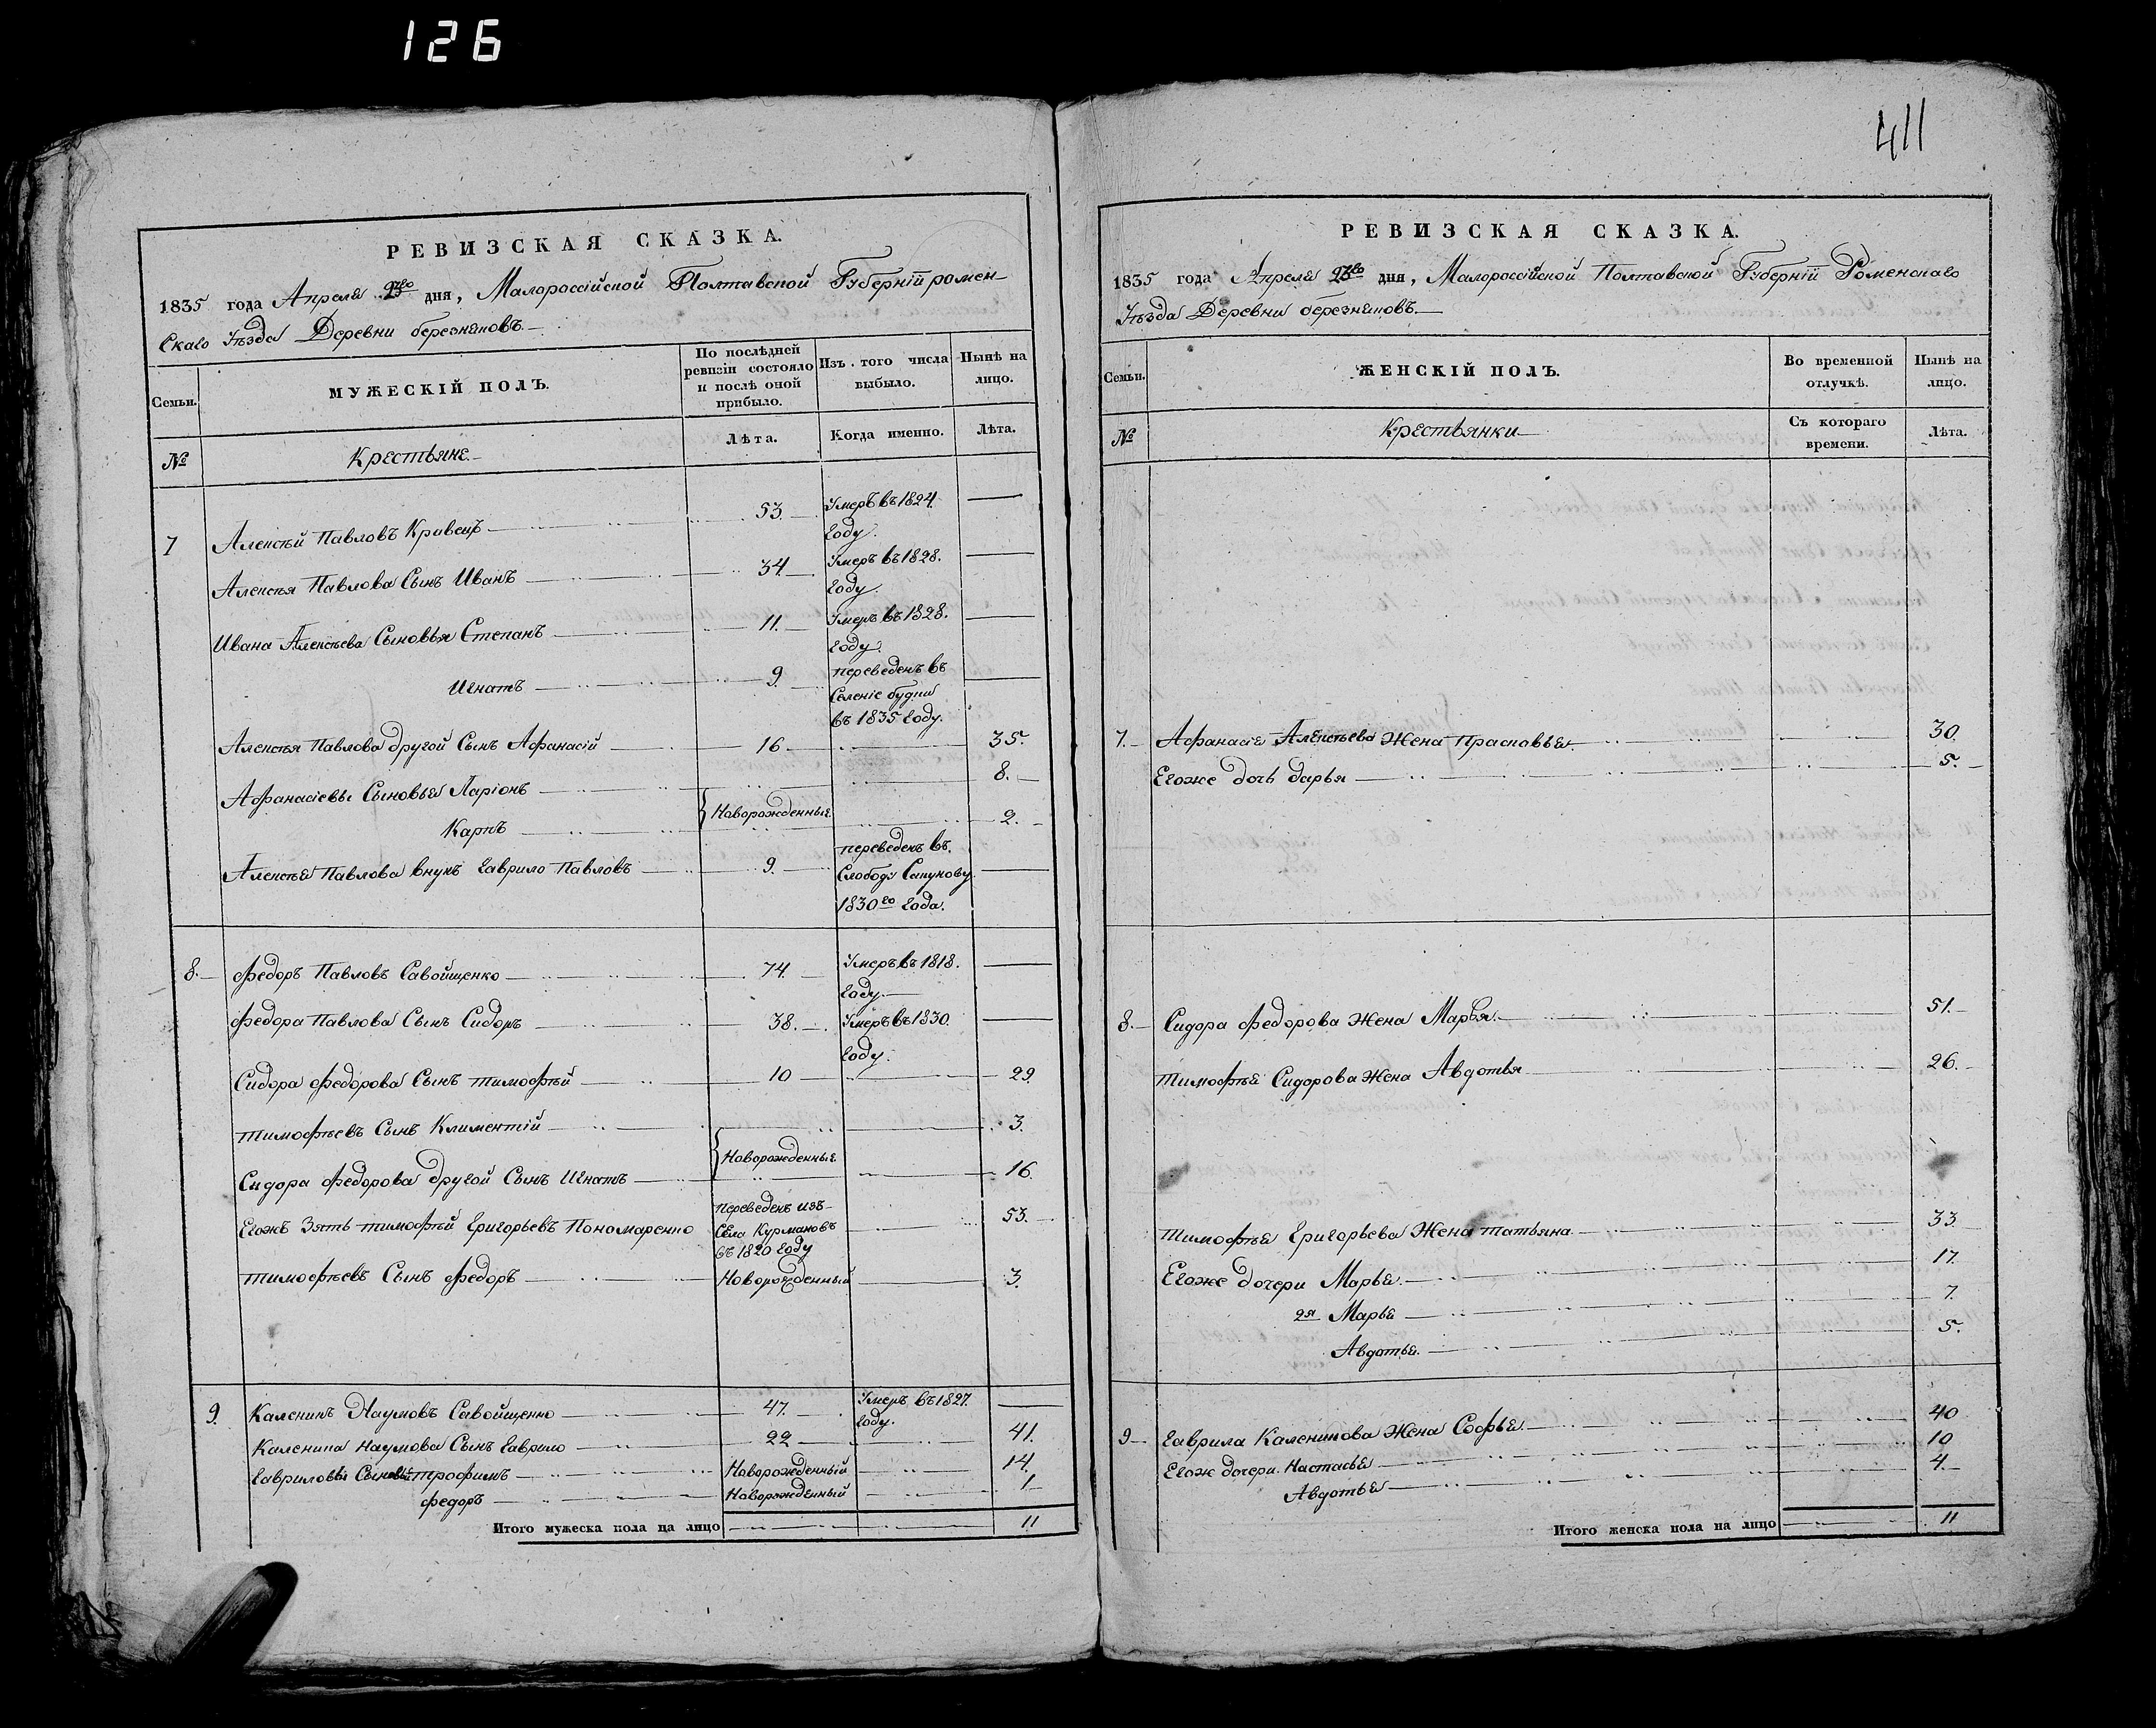 126
411
РЕВИЗСКАЯ СКАЗКА.
1835 года Апреля 23го дня, Малороссійской Полтавской Губерніи ромен-
скаго Уѣзда Деревни березняковъ.
Семьи.
МУЖЕСКІЙ ПОЛЪ.
По послѣдней ревизіи состояло и послѣ оной прибыло.
Изъ того числа выбыло.
Нынѣ на лицо.
№
Крестьяне.
Лѣта.
Когда именно.
Лѣта.
7 Алексѣй Павловъ Кравецъ 53. Умеръ въ 1824. году.
Алексѣя Павлова Сынъ Иванъ 34. Умеръ въ 1828. году.
Ивана Алексѣева Сыновья Степанъ 11. Умеръ въ 1828. году.
Игнатъ 9. переведенъ въ Селеніе будки въ 1835 году.
Алексѣя Павлова другой Сынъ Афанасій 16 35.
Афанасіевы Сыновья Ларіонъ Новорожденные 8.
Карпъ 2.
Алексѣя Павлова внукъ Гаврило Павловъ 9. переведенъ въ Слободу Сапунову 1830го года.
8. Федоръ Павловъ Савойщенко 74. Умеръ въ 1818. году.
Федора Павлова Сынъ Сидоръ 38. Умеръ въ 1830. году.
Сидора Федорова Сынъ тимофѣй 10 29.
тимофѣевъ Сынъ Климентій Новорожденные 3.
Сидора Федорова другой Сынъ Игнатъ 16
Егожъ Зять тимофѣй Григорьевъ Пономаренко переведенъ изъ Села Курмановъ въ 1820 году 53.
тимофѣевъ Сынъ Федоръ Новорожденный 3.
9. Каленикъ Наумовъ Савойщенко 47. Умеръ въ 1827. году.
Каленика Наумова Сынъ Гаврило 22 41.
Гавриловы Сыновья трофимъ Новорожденный 14.
Федоръ Новорожденный 1
Итого мужеска пола на лицо 11
РЕВИЗСКАЯ СКАЗКА.
1835 года Апреля 23го дня, Малороссійской Полтавской Губерніи Роменскаго
Уѣзда Деревни березняковъ.
Семьи.
ЖЕНСКІЙ ПОЛЪ.
Во временной отлучкѣ.
Нынѣ на лицо.
№
Крестьянки
Съ котораго времени.
Лѣта.
7. Афанасія Алексѣева Жена Прасковья 30.
Егоже дочь дарья 5.
8. Сидора Федорова Жена Марья 51.
тимофѣя Сидорова Жена Авдотья 26.
тимофѣя Григорьева Жена татьяна 33
Егоже дочери Марья 17.
2я Марья 7.
Авдотья 5.
9 Гаврила Каленикова Жена Софья 40
Егож дочери Настасья 10
Авдотья 4.
Итого женска пола на лицо 11